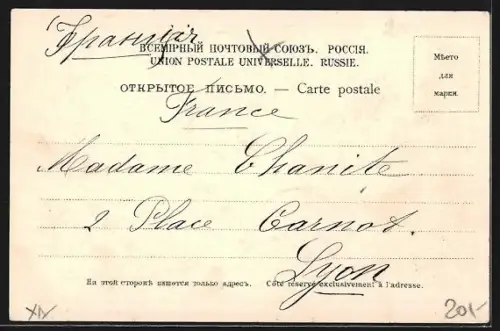 Франция
ВСЕМІРНЫЙ ПОЧТОВЫЙ СОЮЗЪ. РОССІЯ.
UNION POSTALE UNIVERSELLE. RUSSIE.
Мѣсто
для
марки.
ОТКРЫТОЕ ПИСЬМО. — Carte postale
France
Madame Chanite
2 Place Carnot.
Lyon
На этой сторонѣ пишется только адресъ. Côté réservé exclusivement à l'adresse.
XIV
201-